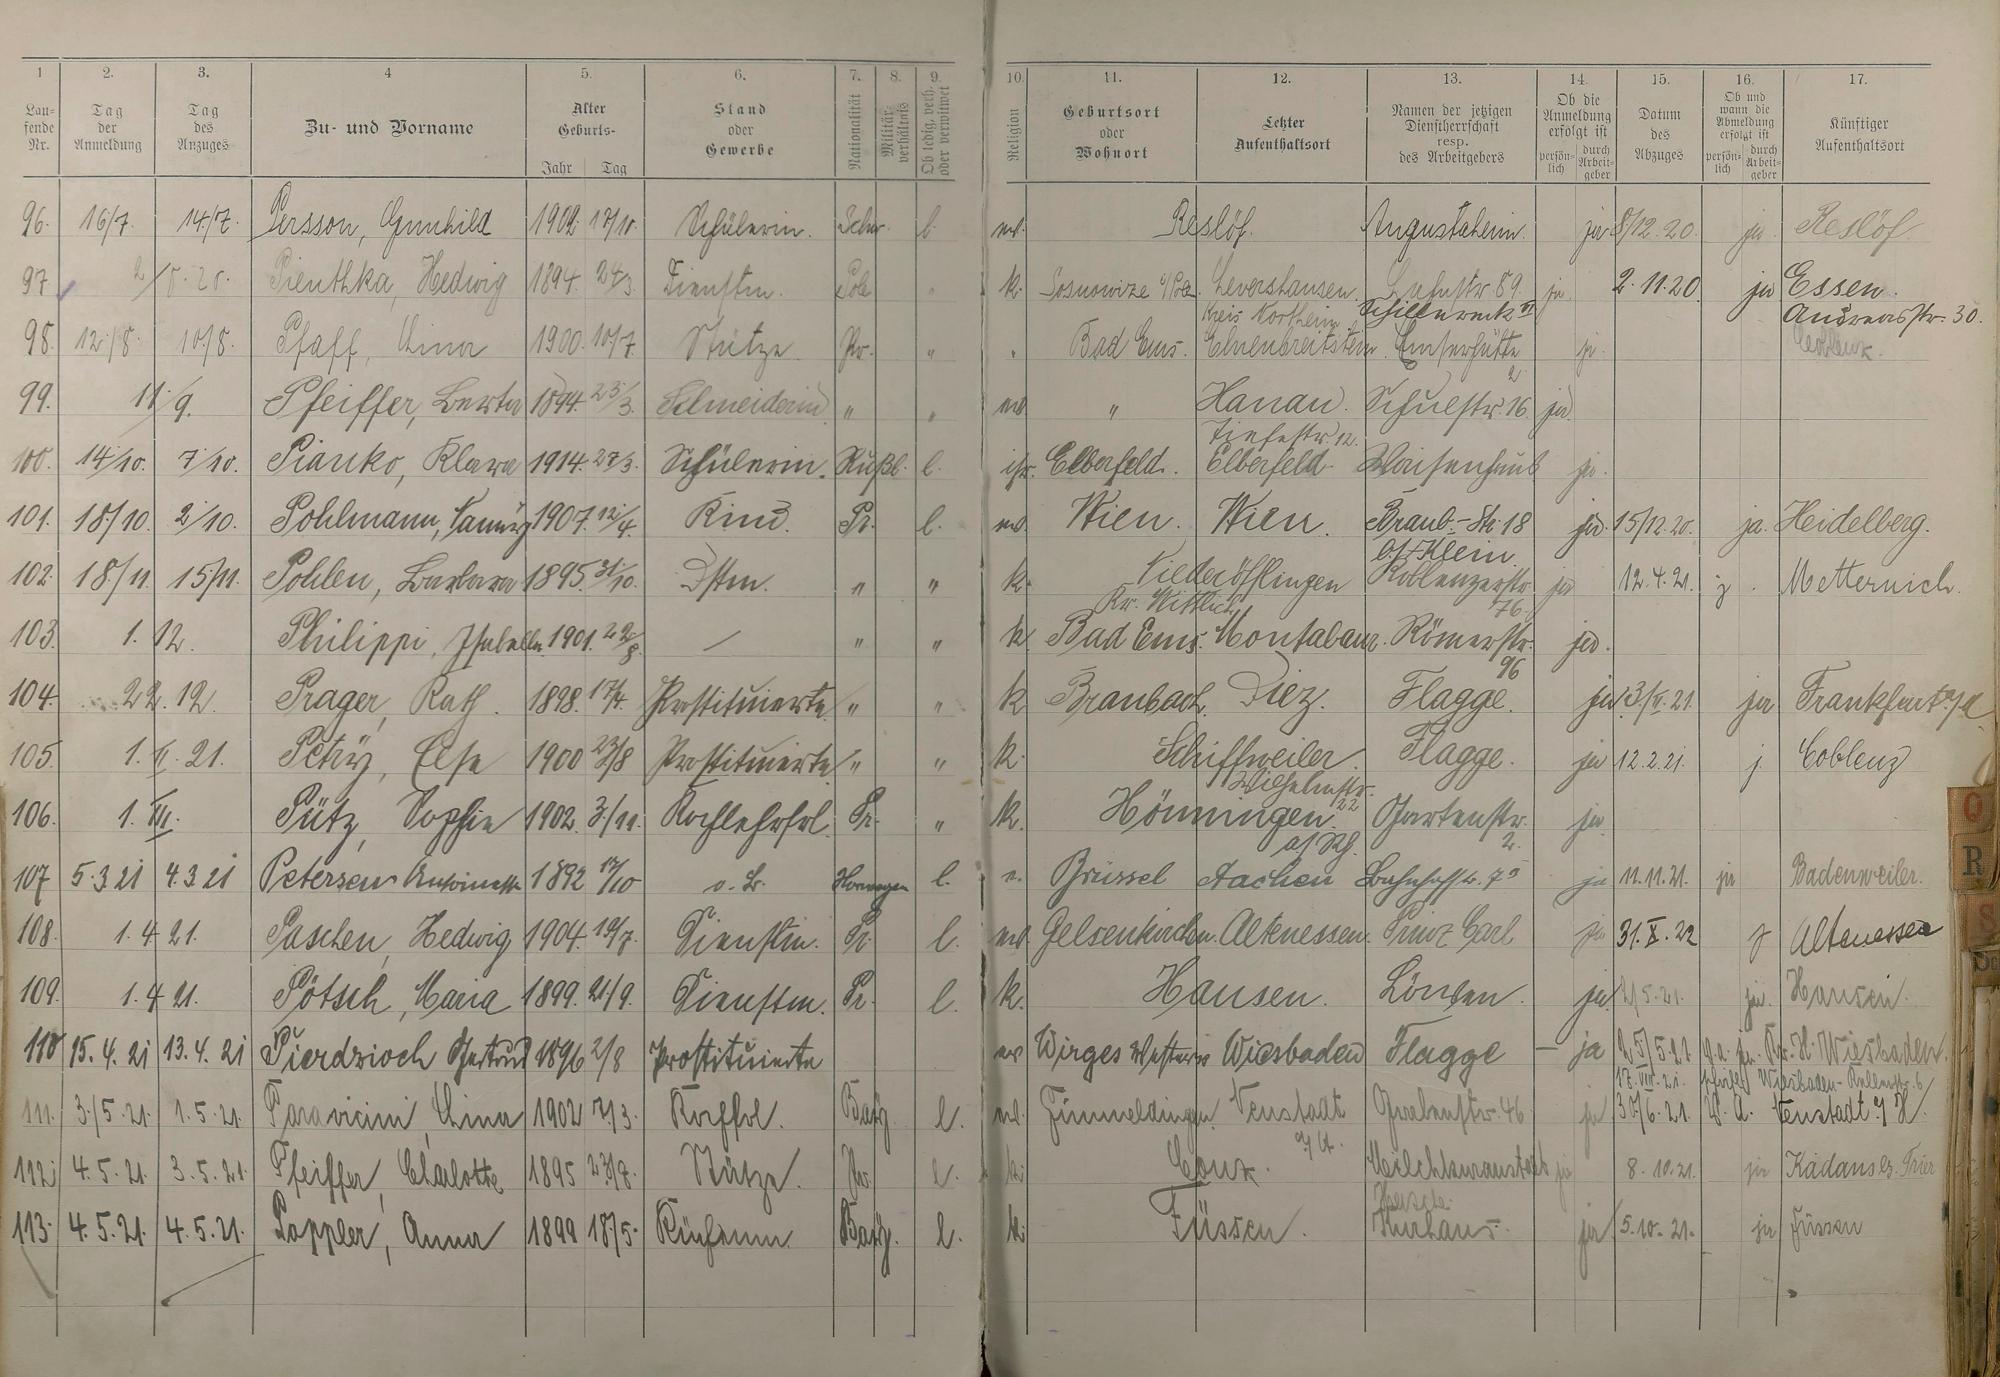 1 2. 3. 4 5. 6. 7. 8. 9. 10. 11. 12. 13. 14. 15. 16. 17.
Lau-
fende
Nr.
Tag
der
Anmeldung
Tag
des
Anzuges
Zu- und Vorname
Alter
Geburts-
Jahr Tag
Stand
oder
Gewerbe
Nationalität
Militär-
verhältnis
Ob ledig, verh.
oder verwitwet
Religion
Geburtsort
oder
Wohnort
Letzter
Aufenthaltsort
Namen der jetzigen
Dienstherrschaft
resp.
des Arbeitgebers
Ob die
Anmeldung
erfolgt ist
persön-
lich
durch
Arbeit-
geber
Datum
des
Abzuges
Ob und
wann die
Abmeldung
erfolgt ist
persön-
lich
durch
Arbeit-
geber
Künftiger
Aufenthaltsort
96. 16/7. 14./7. Persson, Gunhild 1902. 17/10. Schülerin. Schw. l. ev. Reslöf. Augustaheim. ja 8/12.20. ja. Reslöf.
97. 2/8.20. Pienthka, Hedwig 1894. 24/3. Dienstm. Pole " k. Sosnowize Levershausen. 89. ja 2.11.20. ja Essen.
Kreis Northeim. Andreasstr. 30.
98. 12./8. 10/8. Pfaff, Lina 1900. 10/7. Stütze. Pr. " " Bad Ems. Ehrenbreitstein. Emserhütte ja. Coblenz.
2
99. 11./9. Pfeiffer, Berta 1894. 23/3. Schneiderin " " ev. " Hanau. Schulstr. 16. ja.
Tiefestr. 12.
100. 14/10. 7/10. Pianko, Klara 1914. 27/3. Schülerin. Rußl. l. isr. Elberfeld. Elberfeld. Waisenhaus ja.
101. 18./10. 2/10. Pohlmann, 1907. 12/4. Kind. Pr. l. ev. Wien. Wien. Braub.-Str. 18 ja. 15/12.20. ja. Heidelberg.
b/Klein.
102. 18./11. 15/11. Pohlen, Barbara 1895. 31/10. Dstm. " " k. Niederöfflingen Koblenzerstr. ja 12.4.21. j. Metternich.
Kr. Wittlich 76.
103. 1. 12. Philippi, Isabella. 1901. 22/8. — " " k. Bad Ems. Montabaur. Römerstr. ja.
96
104. 22. 12. Prager, Kath. 1898. 17/4. Prostituierte " " k Braubach. Diez. Flagge. ja 3/II.21. ja Frankfurt a/M
105. 1. II. 21. Petry, Else 1900 23/8 Prostituierte " " k. Schiffweiler. Flagge. ja 12.2.21. j. Coblenz
Wilhelmstr.
22
106. 1. III. Pütz, Sophie 1902. 3/11. Kochlehrfrl. Pr. " k. Hönningen. Gartenstr. ja.
a/Rh. 2.
107 5.3 21 4.3 21 Petersen Antoinette 1892 17/10 o. B. Norwegen l. e. Brüssel Aachen Bahnhofstr. ja 11.11.21. ja Badenweiler.
108. 1. 4 21. Paschen, Hedwig 1904. 19/7. Dienstm. Pr. l. ev. Gelsenkirchen. Altenessen. Prinz Carl ja 31.X.22 j Altenessen
109. 1. 4 21. Pötsch, Maria 1899. 21/9. Dienstm. Pr. l. k. Hausen. Löwen. ja. 2/5.21. ja. Hausen.
110 15. 4. 21 13. 4. 21 Pierdzioch Gertrud 1896 2/8 Prostituierte ev Wirges Westerw Wiesbaden Flagge — ja 25/5 21 Wiesbaden.
17.VIII.21. Wiesbaden-
111. 3/5.21. 1.5.21. Paravicini, Lina 1902 7/3. Kochfrl. Bay. l. ev. Zimmeldingen. Neustadt Grabenstr. 46 ja 30/6.21. W. A. Neustadt a/H.
a/H.
112. 4.5.21. 3.5.21. Pfeiffer, Charlotte 1895 23/7. Stütze. Pr. l. k. Conz. Milchkuranstalt ja 8.10.21. ja Trier
113. 4.5.21. 4.5.21. Poppler, Anna 1899 18/5. Bay. l. k. Füssen. Kurhaus. ja 5.10.21. ja Füssen
O
R
S